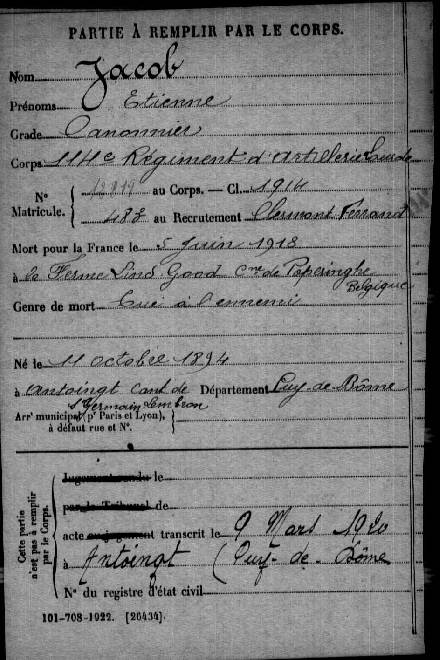 PARTIE À REMPLIR PAR LE CORPS.
Nom Jacob
Prénoms Etienne
Grade Canonnier
Corps 114e Régiment d'Artillerie Lourde
N° Matricule. au Corps. — Cl. 1914
487 au Recrutement Clermont Ferrand
Mort pour la France le 5 Juin 1918
à la Ferme Lind Good Cne de Poperinghe
Belgique
Genre de mort Tué à l'ennemi
Né le 11 octobre 1894
à Antoingt Cant de Département Puy-de-Dôme
St Germain Lembron
Arrt municipal (pr Paris et Lyon),
à défaut rue et N°.
Cette partie n'est pas à remplir par le Corps.
Jugement rendu le
par le Tribunal de
acte ou jugement transcrit le 9 Mars 1920
à Antoingt (Puy-de-Dôme
N° du registre d'état civil
101-708-1922. [26434].